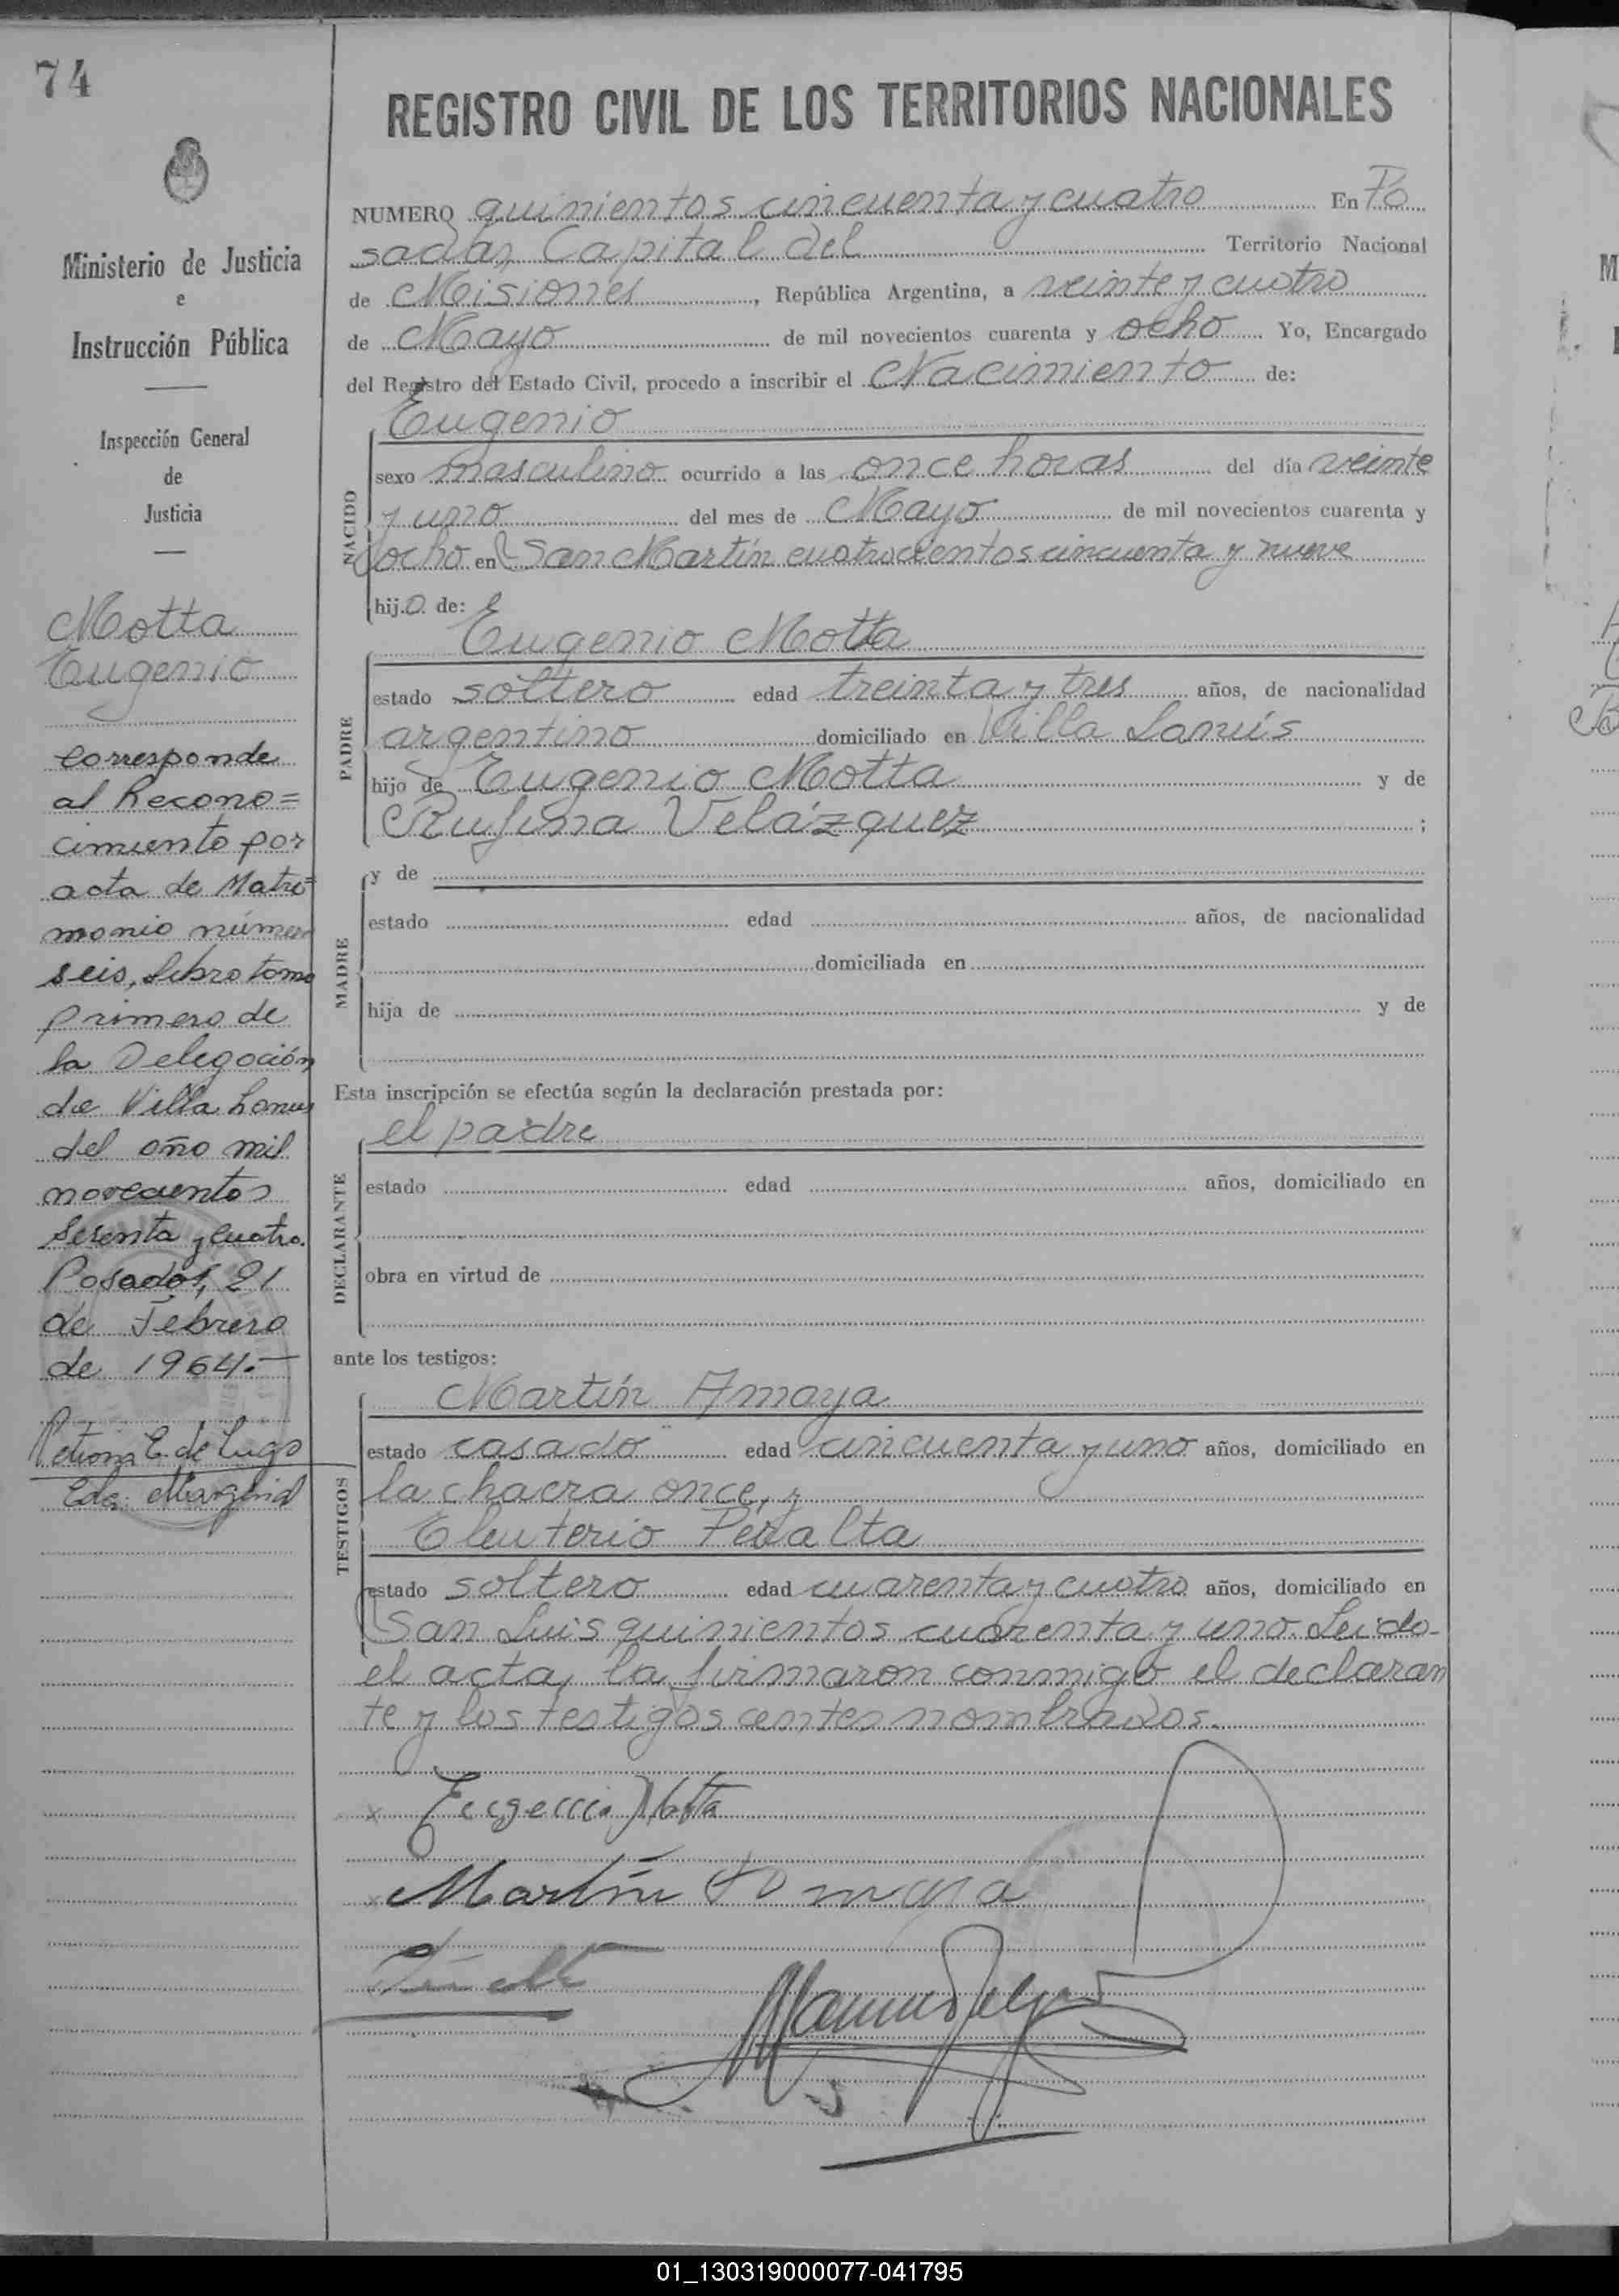 74
Ministerio de Justicia
e
Instrucción Pública
Inspección General
de
Justicia
Motta
Eugenio
Corresponde
al Recono=
cimiento por
acta de Matri=
monio número
seis, Libro tomo
primero de
la Delegación
de Villa Lanus
del año mil
novecientos
sesenta y cuatro.
Posadas, 21
de Febrero
de 1964.-
E. de Lugo
REGISTRO CIVIL DE LOS TERRITORIOS NACIONALES
NUMERO quinientos cincuenta y cuatro En Po
sadas, Capital del Territorio Nacional
de Misiones, República Argentina, a veinte y cuatro
de Mayo de mil novecientos cuarenta y ocho Yo, Encargado
del Registro del Estado Civil, procedo a inscribir el Nacimiento de:
NACIDO
Eugenio
sexo masculino ocurrido a las once horas del día veinte
y uno del mes de Mayo de mil novecientos cuarenta y
ocho en San Martín cuatrocientos cincuenta y nueve
hijo de:
PADRE
Eugenio Motta
estado soltero edad treinta y tres años, de nacionalidad
argentino domiciliado en Villa Lanús
hijo de Eugenio Motta y de
Rufina Velázquez ;
MADRE
y de
estado edad años, de nacionalidad
domiciliada en
hija de y de
Esta inscripción se efectúa según la declaración prestada por:
DECLARANTE
el padre
estado edad años, domiciliado en
obra en virtud de
ante los testigos:
TESTIGOS
Martín Amaya
estado casado edad cincuenta y uno años, domiciliado en
la chacra once, y
Eleuterio Peralta
estado soltero edad cuarenta y cuatro años, domiciliado en
San Luis quinientos cuarenta y uno. Leido
el acta, la firmaron conmigo el declaran
te y los testigos antes nombrados.
x Eugenio Motta
x Martín Amaya
01_130319000077-041795